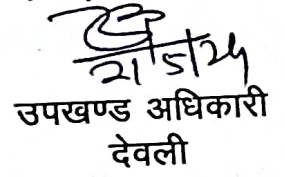 21/5/24
उपखण्ड अधिकारी
देवली